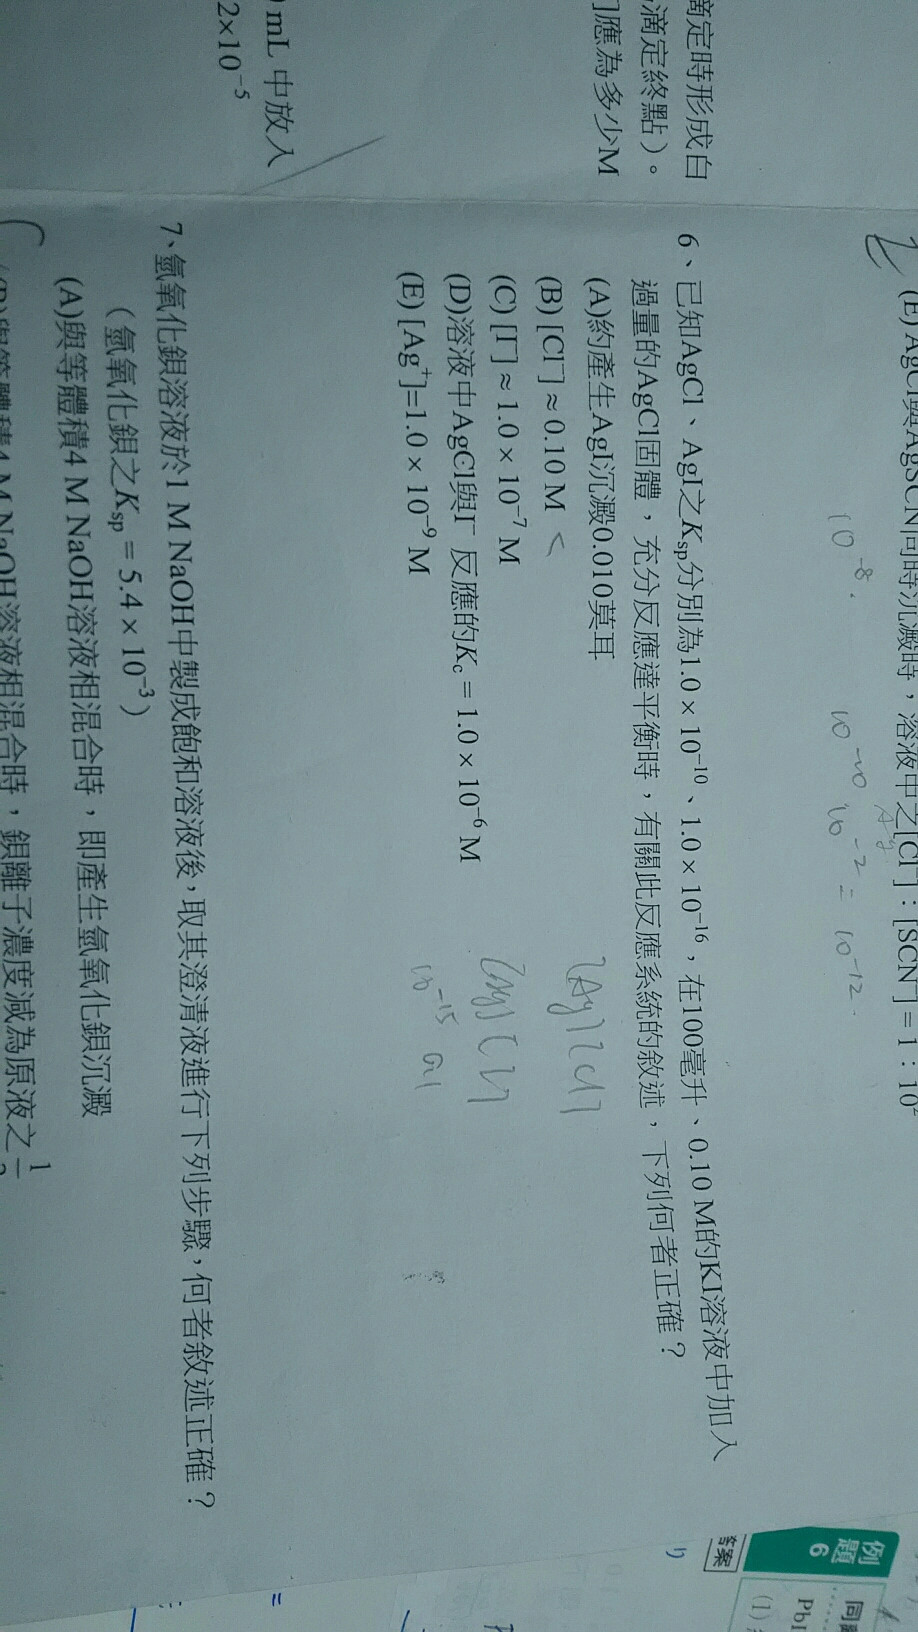 滴定時形成白
滴定終點)。
應為多少M
mL 中放入
2×10⁻⁵
(E)AgCl與AgSCN同時沉澱時，溶液中之[Cl⁻]：[SCN⁻]=1：10²
10⁻⁸.
10⁻¹⁰
10⁻² = 10⁻¹²
6、已知AgCl、AgI之Ksp分別為1.0×10⁻¹⁰、1.0×10⁻¹⁶，在100毫升、0.10 M的KI溶液中加入
過量的AgCl固體，充分反應達平衡時，有關此反應系統的敘述，下列何者正確？
(A)約產生AgI沉澱0.010莫耳
(B) [Cl⁻]≈0.10 M <
(C) [I⁻]≈1.0×10⁻⁷ M
(D)溶液中AgCl與I⁻ 反應的Kc = 1.0×10⁻⁶ M
(E) [Ag⁺]=1.0×10⁻⁹ M
[Ag][Cl]
[Ag][I]
10⁻¹⁵ 0.1
7、氫氧化鋇溶液於1 M NaOH中製成飽和溶液後，取其澄清液進行下列步驟，何者敘述正確？
（氫氧化鋇之Ksp = 5.4×10⁻³）
(A)與等體積4 M NaOH溶液相混合時，即產生氫氧化鋇沉澱
(B)與等體積4 M NaOH溶液相混合時，鋇離子濃度減為原液之
例題 6
答案
PbI
(1)